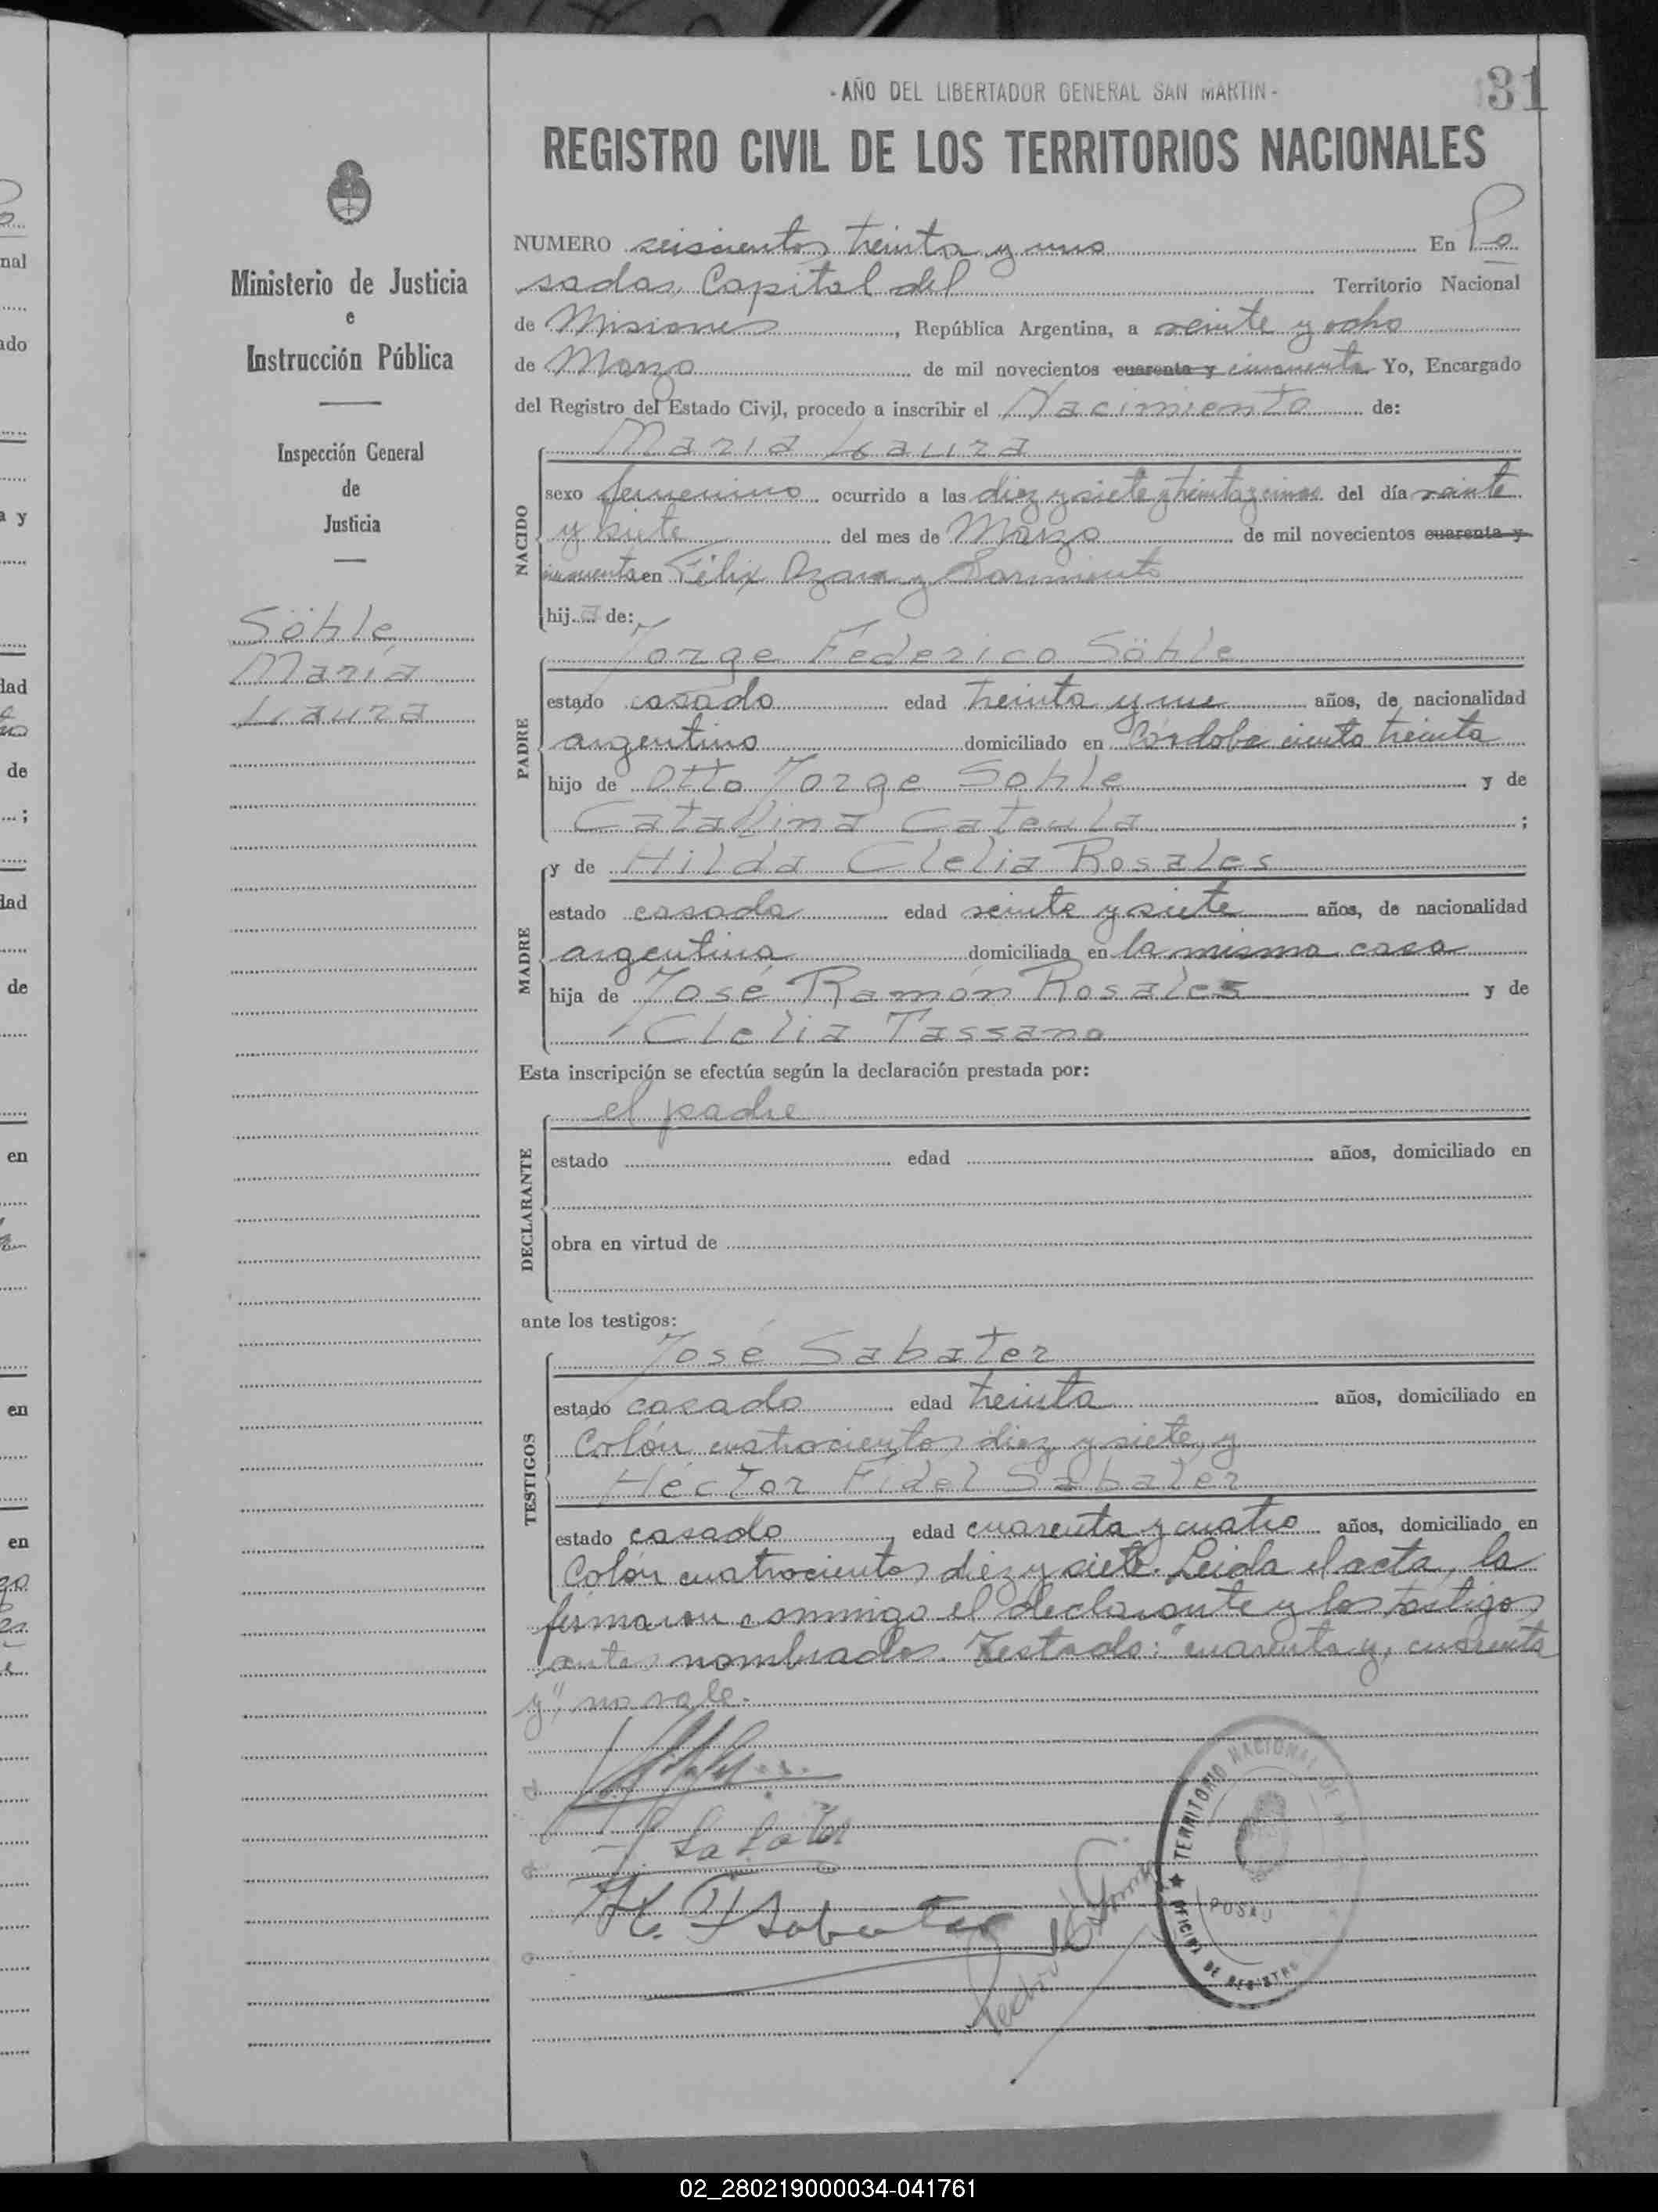 - AÑO DEL LIBERTADOR GENERAL SAN MARTIN -
31
REGISTRO CIVIL DE LOS TERRITORIOS NACIONALES
Ministerio de Justicia
e
Instrucción Pública
Inspección General
de
Justicia
Söhle
María
Laura
NUMERO seiscientos treinta y uno En Po
sadas, Capital del Territorio Nacional
de Misiones, República Argentina, a veinte y ocho
de Marzo de mil novecientos cuarenta y cincuenta Yo, Encargado
del Registro del Estado Civil, procedo a inscribir el Nacimiento de:
NACIDO
María Laura
sexo femenino ocurrido a las diez y siete y treinta y cinco del día veinte
y siete del mes de Marzo de mil novecientos cuarenta y
cincuenta en Félix Azara y Sarmiento
hija de:
PADRE
Jorge Federico Söhle
estado casado edad treinta y un años, de nacionalidad
argentino domiciliado en Córdoba ciento treinta
hijo de Otto Jorge Sohle y de
Catalina Cateula;
MADRE
y de Hilda Clelia Rosales
estado casada edad veinte y siete años, de nacionalidad
argentina domiciliada en la misma casa
hija de José Ramón Rosales y de
Clelia Tassano
Esta inscripción se efectúa según la declaración prestada por:
DECLARANTE
el padre
estado edad años, domiciliado en
obra en virtud de
ante los testigos:
TESTIGOS
José Sabater
estado casado edad treinta años, domiciliado en
Colón cuatrocientos diez y siete y
Héctor Fidel Sabater
estado casado, edad cuarenta y cuatro años, domiciliado en
Colón cuatrocientos diez y siete. Leida el acta, la
firmaron conmigo el declarante y los testigos
antes nombrados. Testado: "cuarenta y, cuarenta
y" no vale.
J. Sabater
H. F. Sabater
TERRITORIO NACIONAL DE
OFICINA DE REGISTRO
02_280219000034-041761